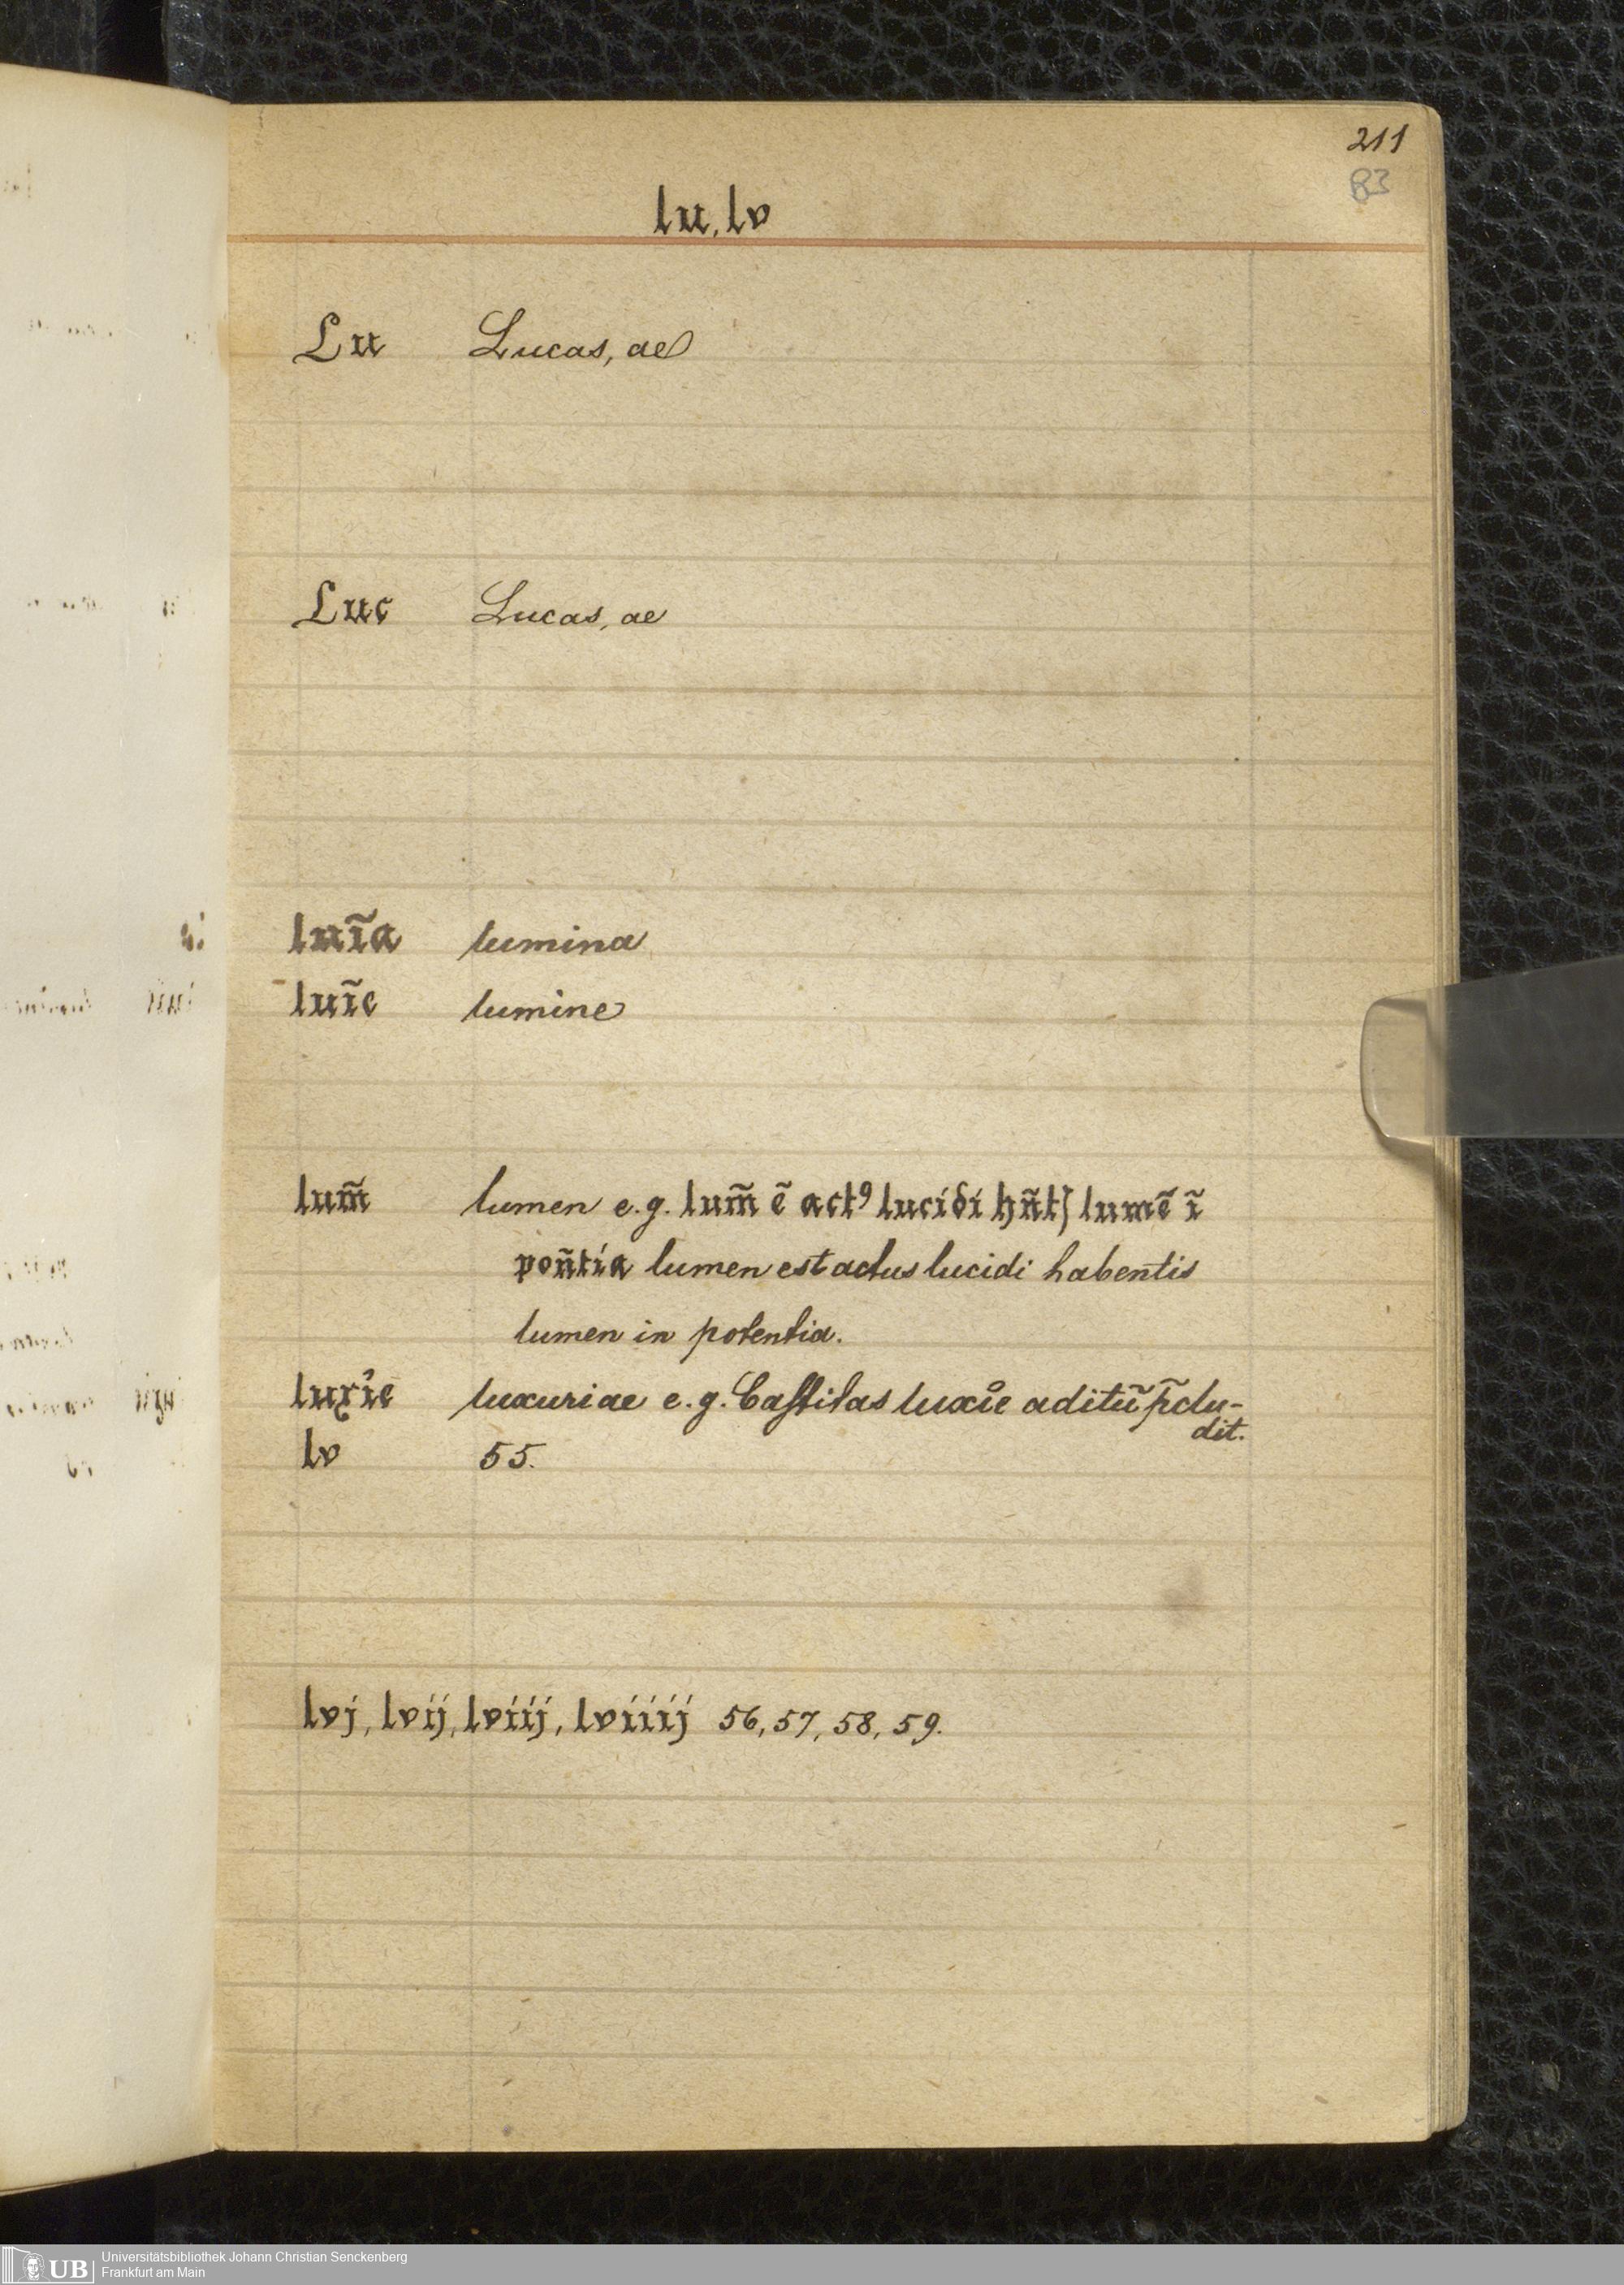 211
83
lu, lv
Lu Lucas, ae
Luc Lucas, ae
luı̃a lumina
luı̃e lumine
lum̃ lumen e.g. lum̃ ẽ actꝰ lucidi hñtꝭ lumẽ ı̃
poñtia lumen est actus lucidi habentis
lumen in potentia.
luxıͥe luxuriae e.g. Caſtitas luxıͥe aditũ p̃clu-
dit.
lv 55.
lvj, lvij, lviij, lviiij 56, 57, 58, 59.
UB Universitätsbibliothek Johann Christian Senckenberg
Frankfurt am Main